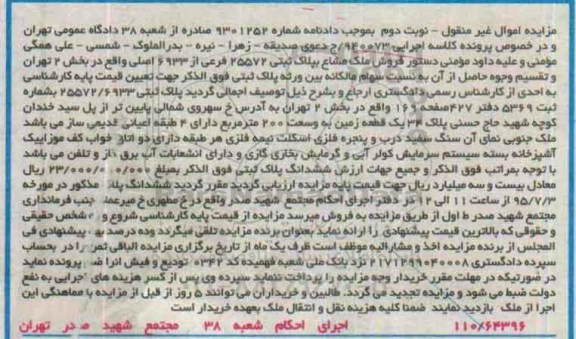 مزایده اموال غیر منقول - نوبت دوم بموجب دادنامه شماره ۹۳۰۱۲۵۲ صادره از شعبه ۳۸ دادگاه عمومی تهران
و در خصوص پرونده کلاسه اجرایی ۹۴۰۰۷۳/ج دعوی صدیقه - زهرا - نیره - بدرالملوک - شمسی - علی همگی
مومنی و علیه داود مومنی دستور فروش ملک مشاع پلاک ثبتی ۲۵۵۷۲ فرعی از ۶۹۳۳ اصلی واقع در بخش ۲ تهران
و تقسیم وجوه حاصل از آن به نسبت سهام مالکانه بین ورثه پلاک ثبتی فوق الذکر جهت تعیین قیمت پایه کارشناسی
به احدی از کارشناس رسمی دادگستری ارجاع و بشرح ذیل توصیف اجمالی گردید پلاک ثبتی ۲۵۵۷۲/۶۹۳۳ بشماره
ثبت ۵۳۶۹ دفتر ۴۲۷ صفحه ۱۶۱ واقع در بخش ۲ تهران به آدرس خ سهروی شمالی پایین تر از پل سید خندان
کوچه شهید حاج حسنی پلاک ۳۴ یک قطعه زمین به وسعت ۲۰۰ مترمربع دارای ۴ طبقه اعیانی قدیمی ساز می باشد
ملک جنوبی نمای آن سنگ سفید درب و پنجره فلزی اسکلت نیمه فلزی هر طبقه دارای دو اتاق خواب کف موزاییک
آشپزخانه بسته سیستم سرمایش کولر آبی و گرمایش بخاری گازی و دارای انشعابات آب برق گاز و تلفن می باشد
با توجه بمراتب فوق الذکر و جمیع جهات ارزش ششدانگ پلاک ثبتی فوق الذکر بمبلغ ۲۳/۰۰۰/۰۰۰/۰۰۰ ریال
معادل بیست و سه میلیارد ریال جهت قیمت پایه مزایده ارزیابی گردید مقرر گردید ششدانگ پلاک مذکور در مورخه
۹۵/۷/۳ از ساعت ۱۱ الی ۱۲ در دفتر اجرای احکام مجتمع شهید صدر واقع در خ مطهری خ میرعماد جنب فرمانداری
مجتمع شهید صدر ط اول از طریق مزایده به فروش میرسد مزایده از قیمت پایه کارشناسی شروع و شخص حقیقی
و حقوقی که بالاترین قیمت پیشنهادی را ارائه نماید بعنوان برنده مزایده تلقی میگردد وده درصد بهای پیشنهادی فی
المجلس از برنده مزایده اخذ و مشارالیه موظف است ظرف یک ماه از تاریخ برگزاری مزایده الباقی ثمن را در بحساب
سپرده دادگستری ۲۱۷۱۲۹۹۰۴۰۰۰۸ نزد بانک ملی شعبه فهمیده کد ۰۳۴۲ تودیع و فیش آنرا ضم پرونده نماید
در صورتیکه در مهلت مقرر خریدار وجه مزایده را پرداخت ننماید سپرده وی پس از کسر هزینه های اجرایی به نفع
دولت ضبط می شود و مزایده تجدید می گردد. طالبین و خریداران می توانند ۵ روز از قبل از مزایده با هماهنگی این
اجرا از ملک بازدید نمایند ضمنا کلیه هزینه نقل و انتقال ملک بعهده خریدار است
۱۱۰/۶۴۳۹۶ اجرای احکام شعبه ۳۸ مجتمع شهید صدر تهران